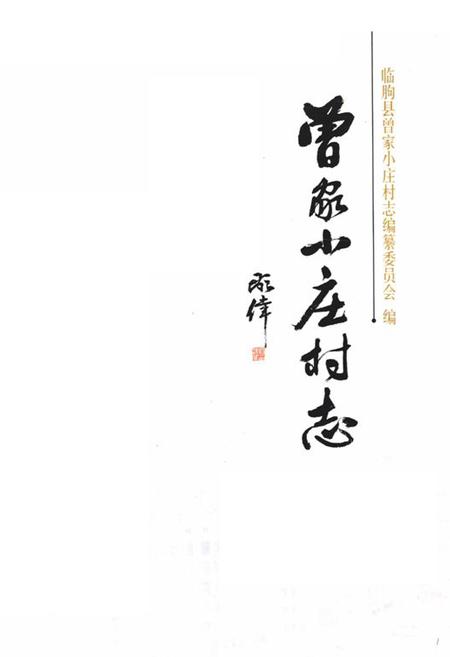 临朐县曾家小庄村志编纂委员会 编
曾家小庄村志